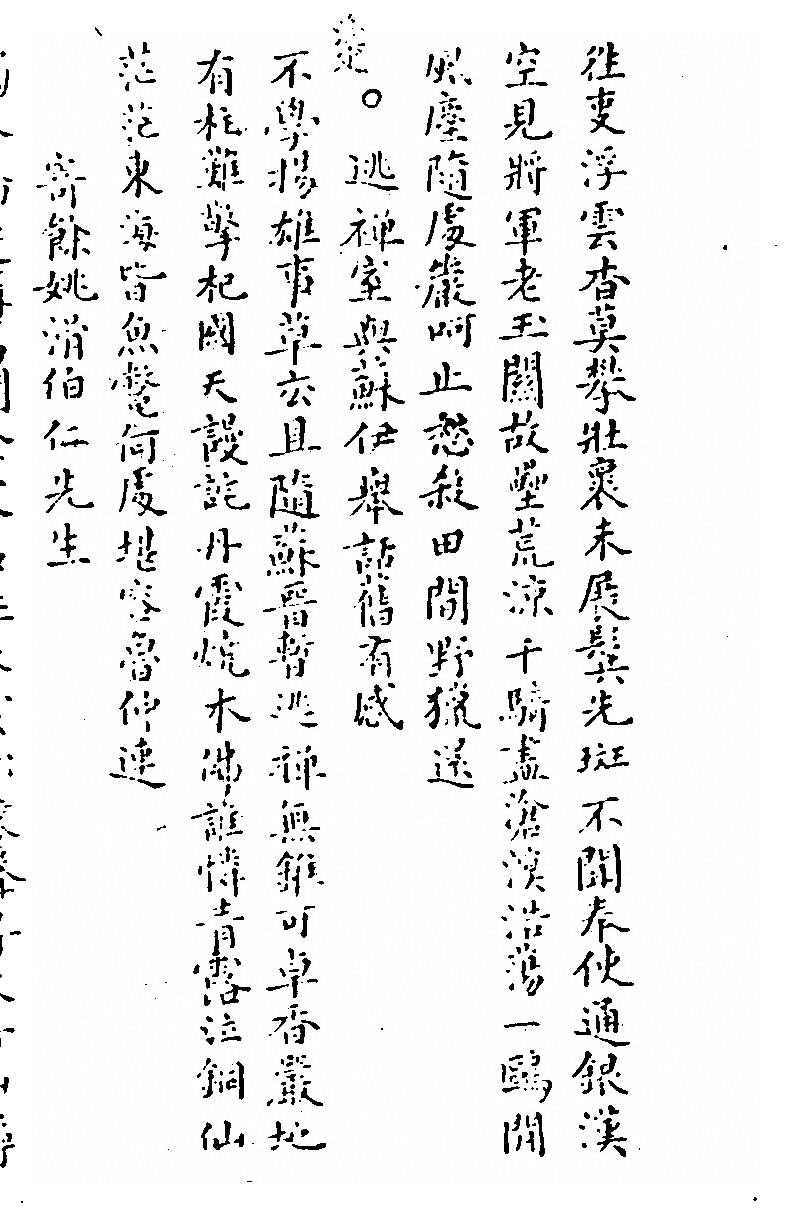 徃叓浮雲杳莫攀壯褱未展鬓先斑不聞奉使通銀漢
空見將軍老玉關故壘荒涼千騎盡滄溟浩蕩一鷗閒
風塵隨處嚴呵止愁殺田間野獵還
逃禪室與蘇伊舉話舊有感
不學揚雄事草玄且隨蘇晉暫逃禪無錐可卓香嚴地
有柱難擎杞國天謾詫丹霞燒木佛誰憐青露泣銅仙
茫茫東海皆魚鼈何處堪容魯仲連
寄餘姚滑伯仁先生